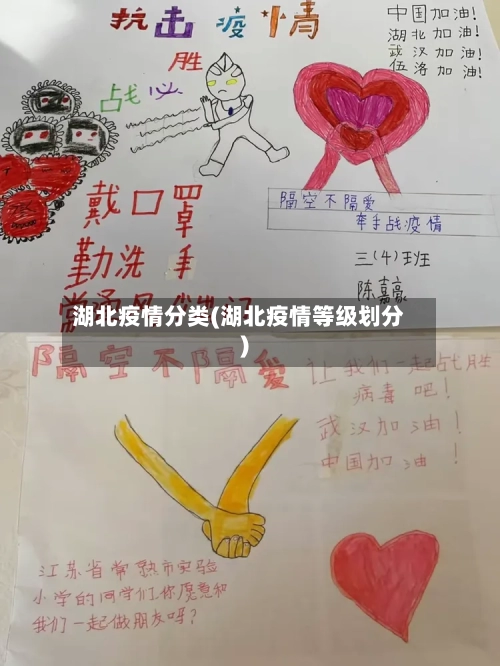 抗击疫情
中国加油!
湖北加油!
武汉加油!
伍洛加油!
胜
战必
戴口罩
勤洗手
常通风
隔空不隔爱
牵手战疫情
三(4)班
陈嘉豪
湖北疫情分类(湖北疫情等级划分
)
隔空不隔爱
让我们一起战胜
病毒吧!
武汉加油!
中国加油!
江苏省常熟市实验
小学的同学们,你愿意和
我们一起做朋友吗?